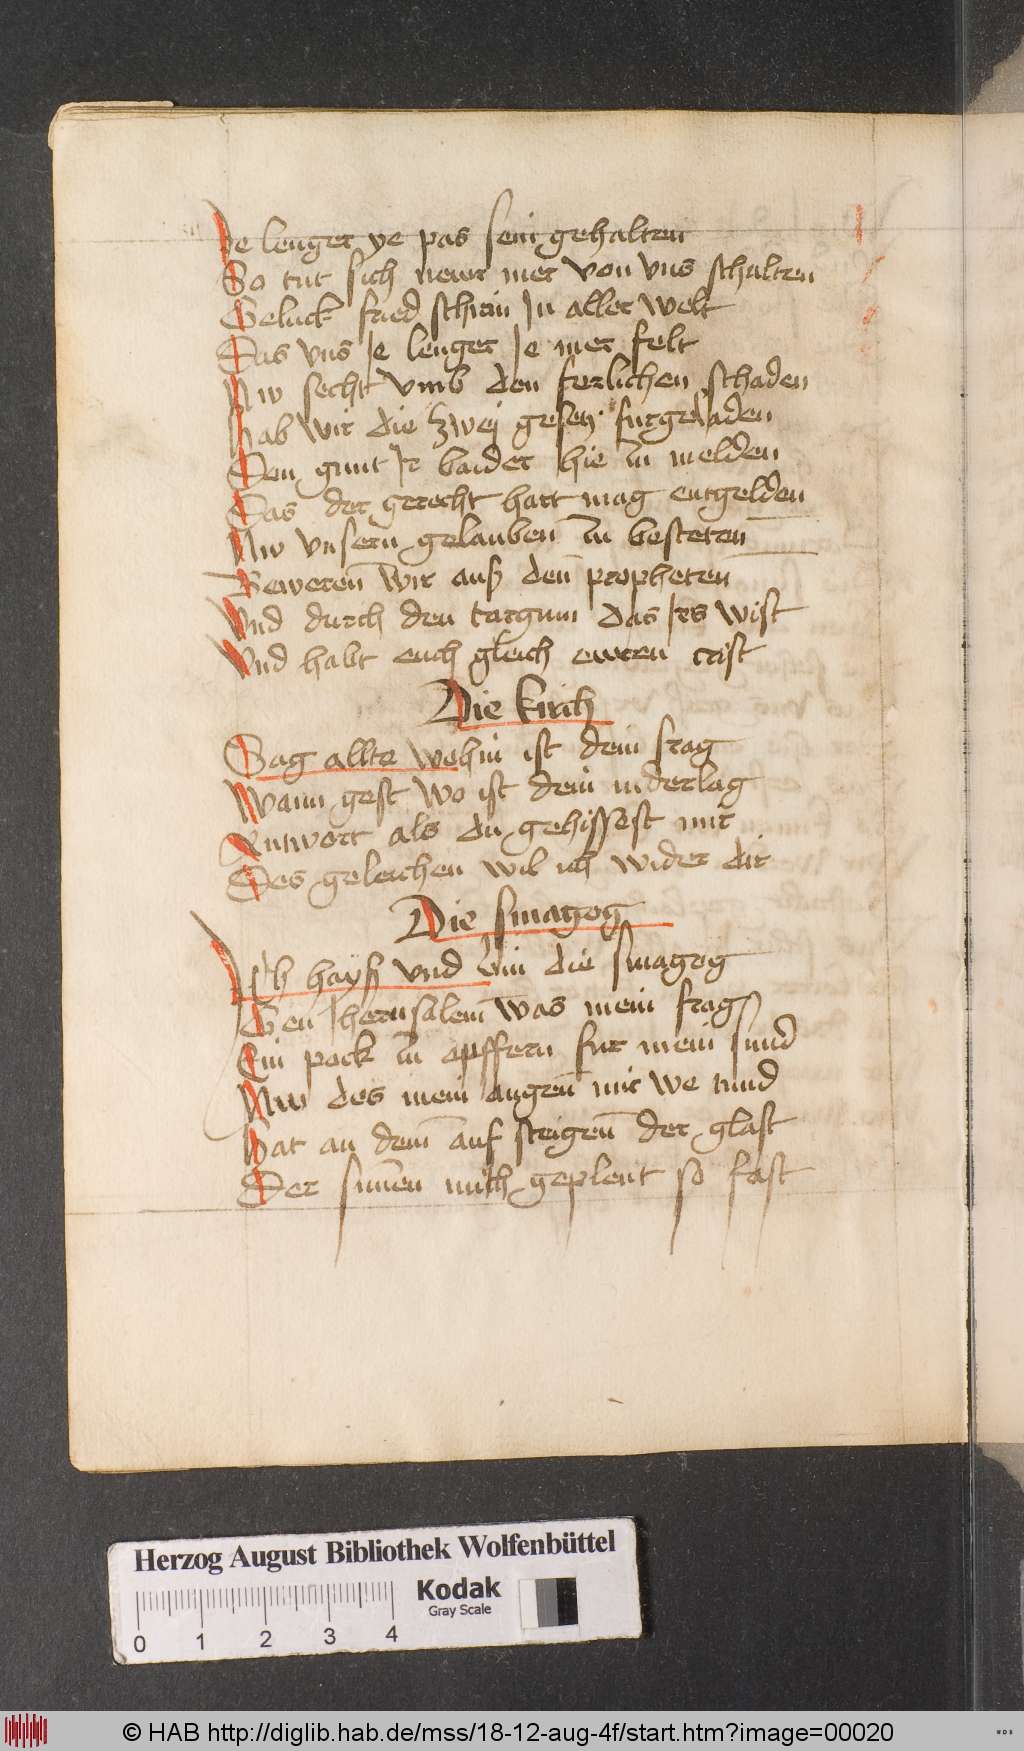 Je lenger ye pas sein gehalten
So tut sich newr mer von vns schalten
Geluck frid schein Jn aller welt
Das vns Je lenger Je mer felt
Nw secht vmb den ferlichen schaden
hab wir die zwej gesetz furgeladen
Den gunt Jr baider hie zu melden
Das der gerecht hart mag entgelden
Nw vnsern gelauben zu besteten
Beweren wir auß den propheten
Vnd durch den targum das Jrs wist
Vnd habt euch gleich ewren crist
Die kirch
Sag allte wohin ist dein frag
Wann gest wo ist dein niderlag
Antwort als du gehissest mir
Des geleichen wil ich wider dir
Die sinagog
Ich hayß vnd bin die sinagog
Gen Jherusalem was mein frag
Ein pock zu opffern fur mein sund
Nw des mein augen mir we tund
Hat an dem auf steigen der glast
Der sunnen mich geplent so fast
Herzog August Bibliothek Wolfenbüttel
Kodak
Gray Scale
0 1 2 3 4
© HAB http://diglib.hab.de/mss/18-12-aug-4f/start.htm?image=00020